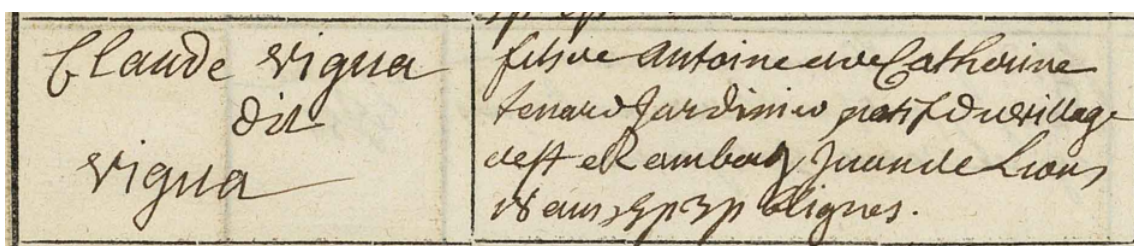 Claude Vigna
dit
Vigna
fils de Antoine et de Catherine
tenard Jardinier natif du village
de St Rambert de Lions
18 ans 5p 3p lignes.